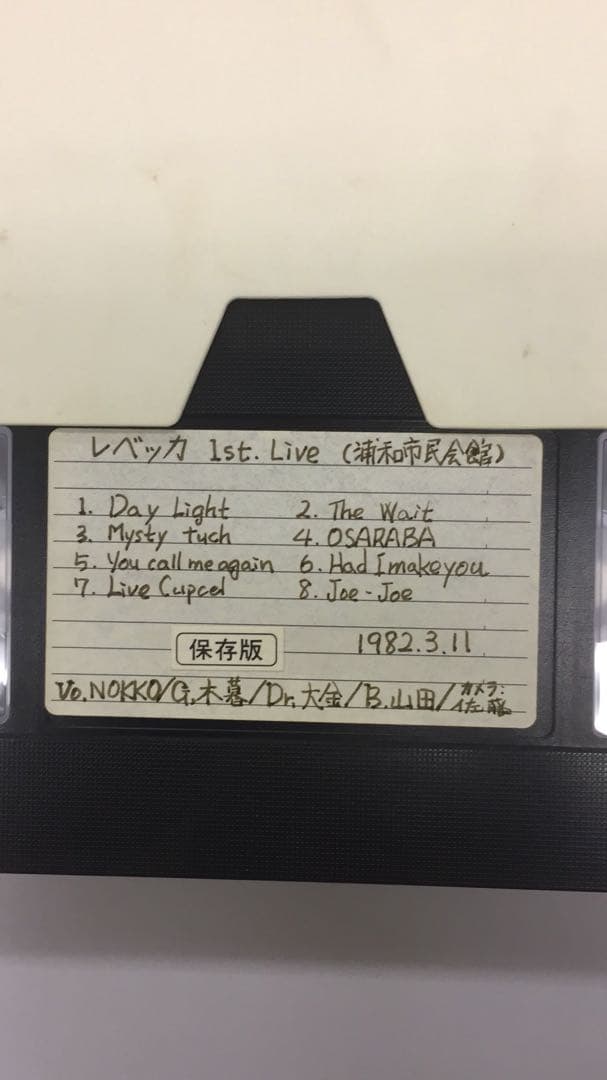 レベッカ 1st. Live (浦和市民会館)
1. Day Light 2. The Wait
3. Mysty tuch 4. OSARABA
5. You call me again 6. Had I make you
7. Live Cupcel 8. Joe-Joe
保存版 1982.3.11
Vo. NOKKO/G.木暮/Dr. 大金/B. 山田/カメラ:佐藤